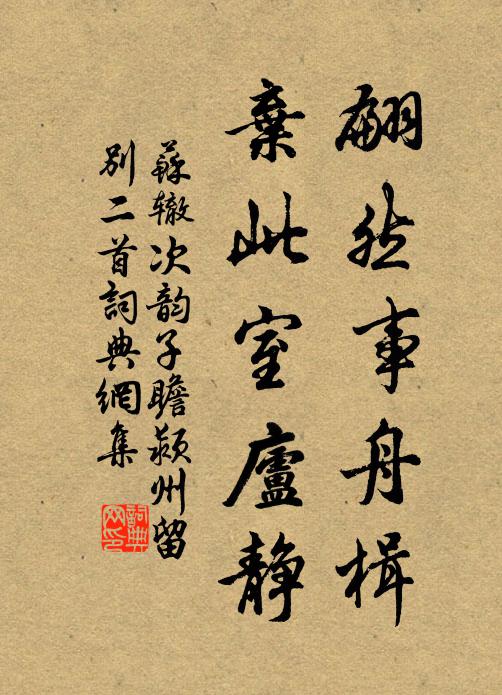 翩然事舟楫
棄此室廬靜
蘇辙次韵子瞻颍州留
别二首詞典網集
詞典
网印